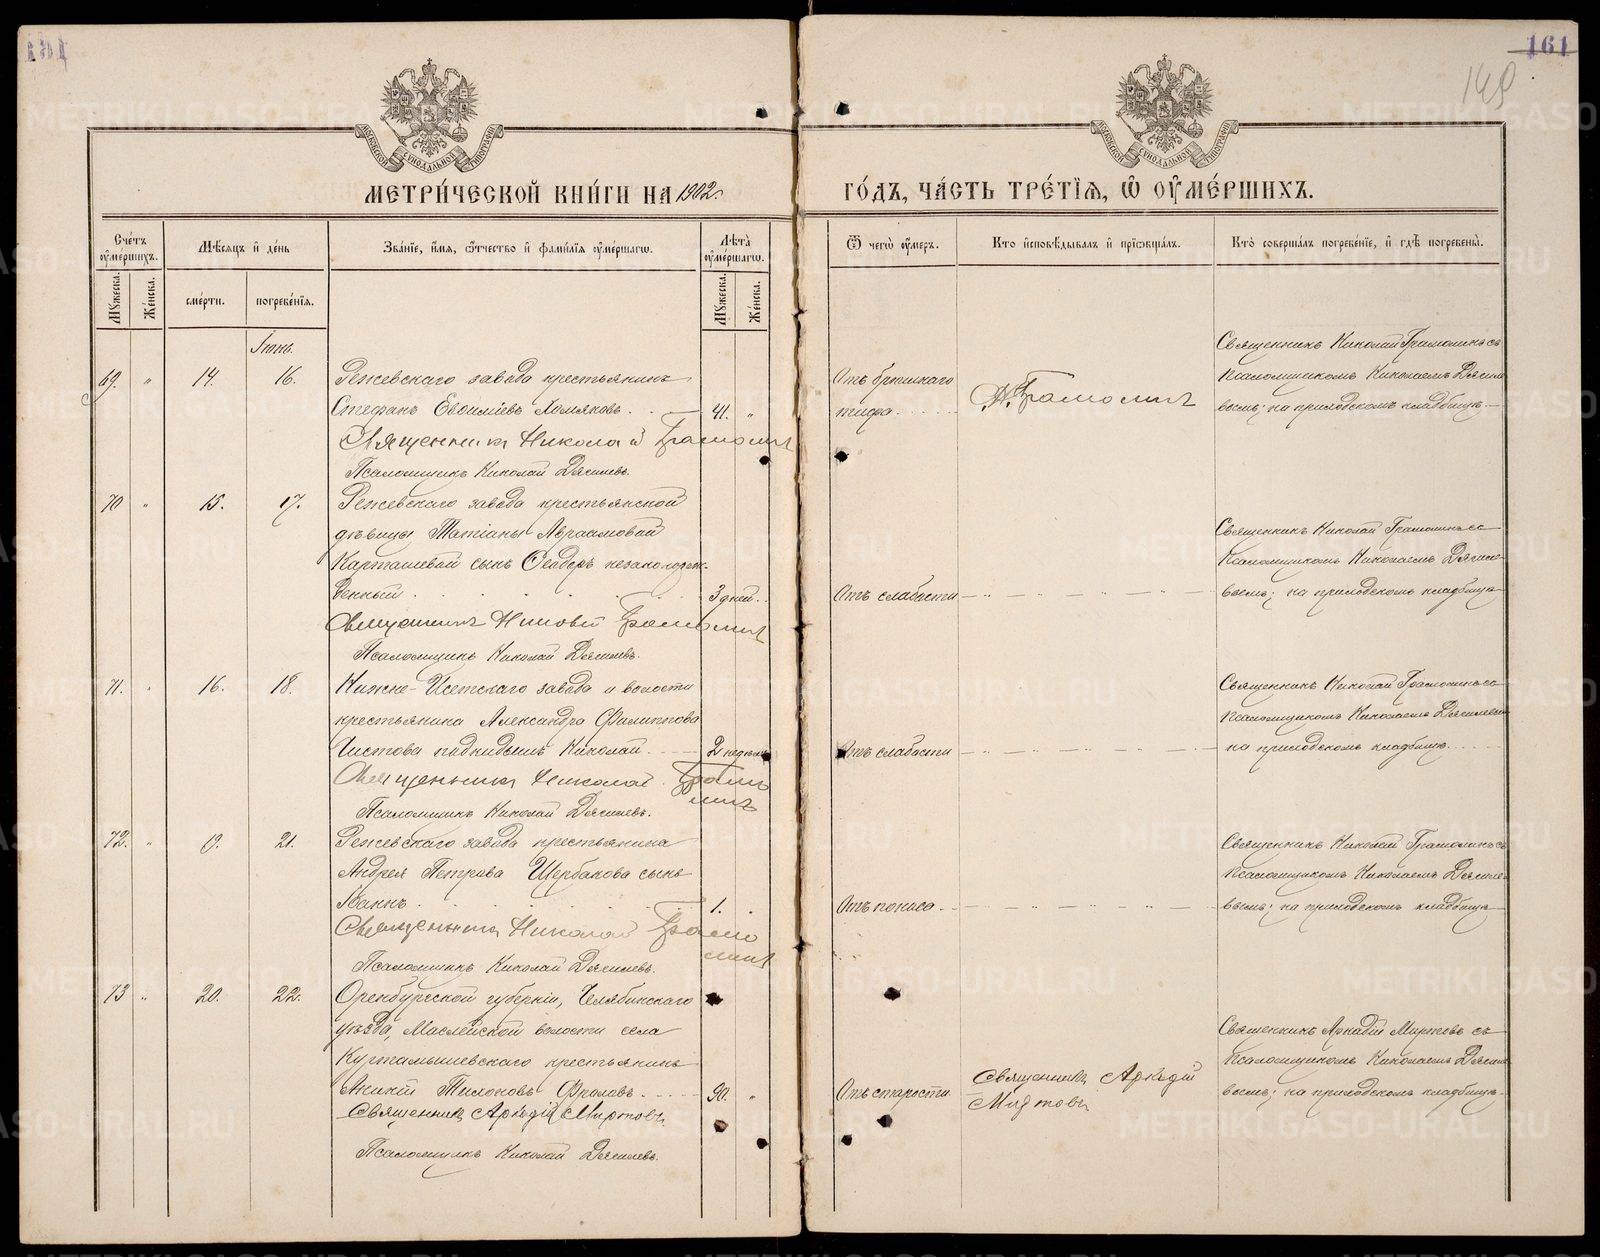 161
149
МЕТРИ́ЧЕСКОЙ КНИ́ГИ НА 1902.
ГО́ДЪ, ЧА́СТЬ ТРЕ́ТІЯ, Ѿ ОУМЕ́РШИХЪ.
Сче́тъ оуме́ршихъ.
Мꙋжеска.
Же́нска.
Мѣ́сяцъ и де́нь
сме́рти.
погребе́нїя.
Зва́нїе, и́мя, ѻ́тчество и фами́лїя оуме́ршагѡ.
Лѣ́та оуме́ршагѡ.
Мꙋжеска.
Же́нска.
Ѿ чегѡ̀ оу́меръ.
Кто̀ и́сповѣ́дывалъ и прїѡбща́лъ.
Кто̀ соверша́лъ погребе́нїе, и гдѣ̀ погребены̀.
Іюнь.
69. " 14. 16. Режевскаго завода крестьянинъ
Стефанъ Евѳиміевъ Хомяковъ. 41. "
Священникъ Николай Грамолинъ
Псаломщикъ Николай Дягилевъ.
Отъ брюшнаго
тифа.
Н. Грамолинъ
Священникъ Николай Грамолинъ съ
Псаломщикомъ Николаемъ Дягиле-
вымъ; на приходскомъ кладбищѣ
70 " 15. 17. Режевскаго завода крестьянской
дѣвицы Татіаны Авраамовой
Карташевой сынъ Ѳеодоръ незаконорож-
денный 3 дней.
Священникъ Николай Грамолинъ
Псаломщикъ Николай Дягилевъ.
Отъ слабости
Священникъ Николай Грамолинъ съ
Псаломщикомъ Николаемъ Дягиле-
вымъ; на приходскомъ кладбищѣ
71. " 16. 18. Нижне-Исетскаго завода и волости
крестьянина Александра Филиппова
Чистова подкидышъ Николай. 2 недѣль
Священникъ Николай Грамо
линъ
Псаломщикъ Николай Дягилевъ.
Отъ слабости
Священникъ Николай Грамолинъ съ
Псаломщикомъ Николаемъ Дягилевымъ
на приходскомъ кладбищѣ.
72. " 19. 21. Режевскаго завода крестьянина
Андрея Петрова Щербакова сынъ
Іоаннъ 1.
Священникъ Николай Грамо
линъ
Псаломщикъ Николай Дягилевъ.
Отъ поноса
Священникъ Николай Грамолинъ съ
Псаломщикомъ Николаемъ Дягиле-
вымъ; на приходскомъ кладбищѣ
73 " 20. 22. Оренбургской губерніи, Челябинскаго
уѣзда, Маслейской волости села
Куртамышевскаго крестьянинъ
Аникій Тихоновъ Фроловъ. 90. "
Священникъ Аркадій Миртовъ
Псаломщикъ Николай Дягилевъ.
Отъ старости
Священникъ Аркадій
Миртовъ
Священникъ Аркадій Миртовъ съ
Псаломщикомъ Николаемъ Дягиле-
вымъ; на приходскомъ кладбищѣ.
METRIKI.GASO-URAL.RU